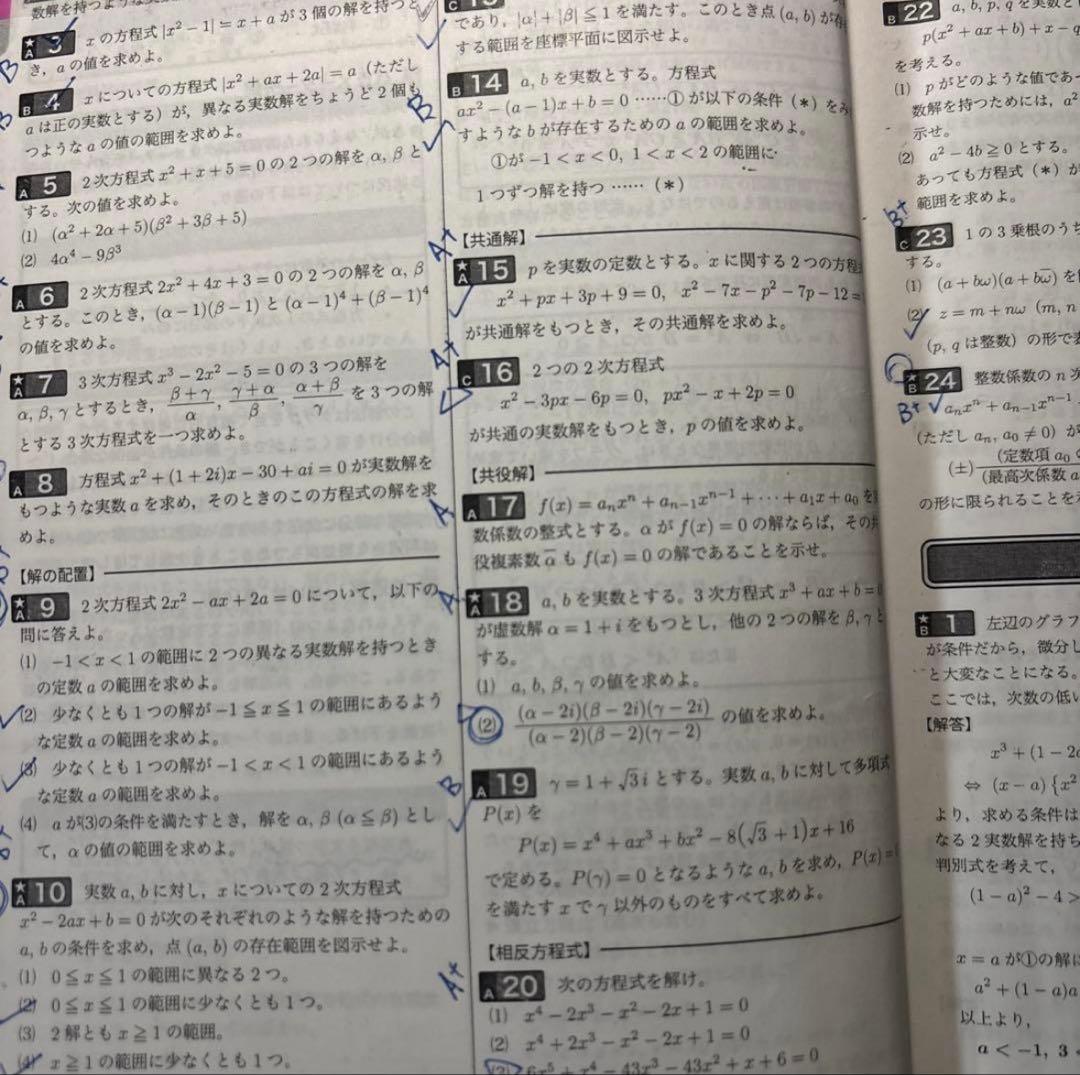 数解を持つような実
★A 3 xの方程式|x²−1|=x+aが3個の解を持つと
き，aの値を求めよ。
B 4 xについての方程式|x²+ax+2a|=a（ただし
aは正の実数とする）が，異なる実数解をちょうど2個も
つようなaの値の範囲を求めよ。
A 5 2次方程式x²+x+5=0の2つの解をα, βと
する。次の値を求めよ。
(1) (α²+2α+5)(β²+3β+5)
(2) 4α⁴−9β³
A 6 2次方程式2x²+4x+3=0の2つの解をα, β
とする。このとき，(α−1)(β−1)と(α−1)⁴+(β−1)⁴
の値を求めよ。
★A 7 3次方程式x³−2x²−5=0の3つの解を
α, β, γとするとき，(β+γ)/α, (γ+α)/β, (α+β)/γを3つの解
とする3次方程式を一つ求めよ。
A 8 方程式x²+(1+2i)x−30+ai=0が実数解を
もつような実数aを求め，そのときのこの方程式の解を求
めよ。
【解の配置】
★A 9 2次方程式2x²−ax+2a=0について，以下の
問に答えよ。
(1) −1<x<1の範囲に2つの異なる実数解を持つとき
の定数aの範囲を求めよ。
(2) 少なくとも1つの解が−1≦x≦1の範囲にあるよう
な定数aの範囲を求めよ。
(3) 少なくとも1つの解が−1<x<1の範囲にあるよう
な定数aの範囲を求めよ。
(4) aが(3)の条件を満たすとき，解をα, β(α≦β)とし
て，αの値の範囲を求めよ。
★A 10 実数a, bに対し，xについての2次方程式
x²−2ax+b=0が次のそれぞれのような解を持つための
a, bの条件を求め，点(a, b)の存在範囲を図示せよ。
(1) 0≦x≦1の範囲に異なる2つ。
(2) 0≦x≦1の範囲に少なくとも1つ。
(3) 2解ともx≧1の範囲。
(4) x≧1の範囲に少なくとも1つ。
であり，|α|+|β|≦1を満たす。このとき点(a, b)が存
する範囲を座標平面に図示せよ。
B 14 a, bを実数とする。方程式
ax²−(a−1)x+b=0 ……①が以下の条件（*）をみ
すようなbが存在するためのaの範囲を求めよ。
①が−1<x<0, 1<x<2の範囲に
1つずつ解を持つ ……（*）
【共通解】
★A 15 pを実数の定数とする。xに関する2つの方程
x²+px+3p+9=0, x²−7x−p²−7p−12=
が共通解をもつとき，その共通解を求めよ。
C 16 2つの2次方程式
x²−3px−6p=0, px²−x+2p=0
が共通の実数解をもつとき，pの値を求めよ。
【共役解】
A 17 f(x)=aₙxⁿ+aₙ₋₁xⁿ⁻¹+⋯+a₁x+a₀を
数係数の整式とする。αがf(x)=0の解ならば，その共
役複素数α̅もf(x)=0の解であることを示せ。
★A 18 a, bを実数とする。3次方程式x³+ax+b=
が虚数解α=1+iをもつとし，他の2つの解をβ, γと
する。
(1) a, b, β, γの値を求めよ。
(2) (α−2i)(β−2i)(γ−2i)/(α−2)(β−2)(γ−2)の値を求めよ。
A 19 γ=1+√3iとする。実数a, bに対して多項式
P(x)を
P(x)=x⁴+ax³+bx²−8(√3+1)x+16
で定める。P(γ)=0となるようなa, bを求め，P(x)=
を満たすxでγ以外のものをすべて求めよ。
【相反方程式】
A 20 次の方程式を解け。
(1) x⁴−2x³−x²−2x+1=0
(2) x⁴+2x³−x²−2x+1=0
(3) 6x⁵+x⁴−43x³−43x²+x+6=0
B 22 a, b, p, qを実数と
p(x²+ax+b)+x−q
を考える。
(1) pがどのような値であっ
数解を持つためには，a²
示せ。
(2) a²−4b≧0とする。
あっても方程式（*）が
範囲を求めよ。
C 23 1の3乗根のうち
する。
(1) (a+bω)(a+bω̅)を
(2) z=m+nω (m, n
(p, qは整数）の形で表
★B 24 整数係数のn次
aₙxⁿ+aₙ₋₁xⁿ⁻¹
(ただしaₙ, a₀≠0）が
(±)(定数項a₀の/(最高次係数a
の形に限られることを
★B 1 左辺のグラフ
が条件だから，微分し
と大変なことになる。
ここでは，次数の低い
【解答】
x³+(1−2a
⇔ (x−a){x²
より，求める条件は
なる2実数解を持ち
判別式を考えて，
(1−a)²−4>
x=aが①の解に
a²+(1−a)a
以上より，
a<−1, 3<